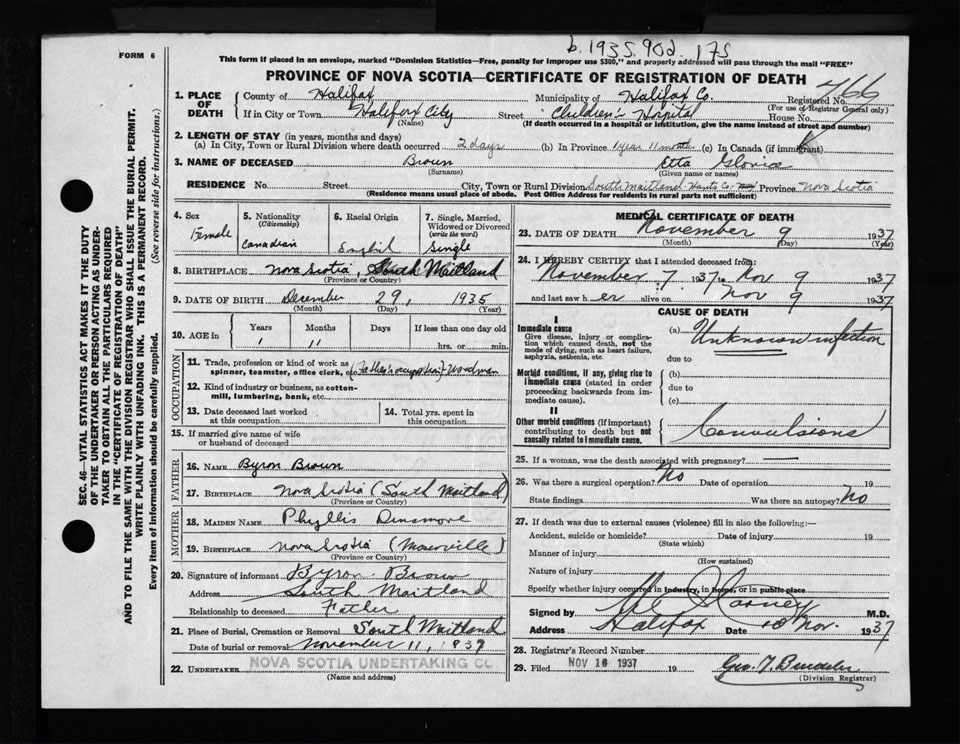 b. 1935. 90d. 175
FORM 6
This form if placed in an envelope, marked "Dominion Statistics—Free, penalty for improper use $300," and properly addressed will pass through the mail "FREE"
PROVINCE OF NOVA SCOTIA—CERTIFICATE OF REGISTRATION OF DEATH
1. PLACE OF DEATH
County of Halifax Municipality of Halifax Co. Registered No. 766
(For use of Registrar General only)
If in City or Town Halifax City Street Children's Hospital House No.
(Name) (If death occurred in a hospital or institution, give the name instead of street and number)
2. LENGTH OF STAY (in years, months and days)
(a) In City, Town or Rural Division where death occurred 2 days (b) In Province 1 year 11 month (c) In Canada (if immigrant)
3. NAME OF DECEASED Brown Etta Gloria
(Surname) (Given name or names)
RESIDENCE No. Street City, Town or Rural Division South Maitland Hants Co. Province Nova Scotia
(Residence means usual place of abode. Post Office Address for residents in rural parts not sufficient)
4. Sex
Female
5. Nationality
(Citizenship)
Canadian
6. Racial Origin
English
7. Single, Married, Widowed or Divorced
(write the word)
Single
8. BIRTHPLACE Nova Scotia, South Maitland
(Province or Country)
9. DATE OF BIRTH December 29, 1935
(Month) (Day) (Year)
10. AGE in Years Months Days If less than one day old
1 11 hrs. or min.
OCCUPATION
11. Trade, profession or kind of work as
spinner, teamster, office clerk, etc. (Father's occupation)—Woodman
12. Kind of industry or business, as cotton-
mill, lumbering, bank, etc.
13. Date deceased last worked
at this occupation
14. Total yrs. spent in
this occupation
15. If married give name of wife
or husband of deceased
FATHER
16. NAME Byron Brown
17. BIRTHPLACE Nova Scotia (South Maitland)
(Province or Country)
MOTHER
18. MAIDEN NAME Phyllis Densmore
19. BIRTHPLACE Nova Scotia (Moserville)
(Province or Country)
20. Signature of informant Byron Brown
Address South Maitland
Relationship to deceased Father
21. Place of Burial, Cremation or Removal South Maitland
Date of burial or removal November 11, 1937
22. UNDERTAKER NOVA SCOTIA UNDERTAKING CO
(Name and address)
MEDICAL CERTIFICATE OF DEATH
23. DATE OF DEATH November 9 1937
(Month) (Day) (Year)
24. I HEREBY CERTIFY that I attended deceased from:
November 7 1937 to Nov 9 1937
and last saw h er alive on Nov 9 1937
CAUSE OF DEATH
I
Immediate cause
Give disease, injury or complication which caused death, not the mode of dying, such as heart failure, asphyxia, asthenia, etc.
(a) Unknown infection
due to
Morbid conditions, if any, giving rise to immediate cause (stated in order proceeding backwards from immediate cause).
(b)
due to
(c)
II
Other morbid conditions (if important) contributing to death but not causally related to immediate cause.
Convulsions
25. If a woman, was the death associated with pregnancy?
26. Was there a surgical operation? No Date of operation 19
State findings Was there an autopsy? No
27. If death was due to external causes (violence) fill in also the following:—
Accident, suicide or homicide? Date of injury 19
(State which)
Manner of injury
(How sustained)
Nature of injury
Specify whether injury occurred in Industry, in home, or in public place
Signed by M.D.
Address Halifax Date 10 Nov. 1937
28. Registrar's Record Number
29. Filed NOV 16 1937 19
(Division Registrar)
SEC. 46—VITAL STATISTICS ACT MAKES IT THE DUTY
OF THE UNDERTAKER OR PERSON ACTING AS UNDER-
TAKER TO OBTAIN ALL THE PARTICULARS REQUIRED
IN THE "CERTIFICATE OF REGISTRATION OF DEATH"
AND TO FILE THE SAME WITH THE DIVISION REGISTRAR WHO SHALL ISSUE THE BURIAL PERMIT.
WRITE PLAINLY WITH UNFADING INK. THIS IS A PERMANENT RECORD.
Every item of information should be carefully supplied. (See reverse side for instructions.)